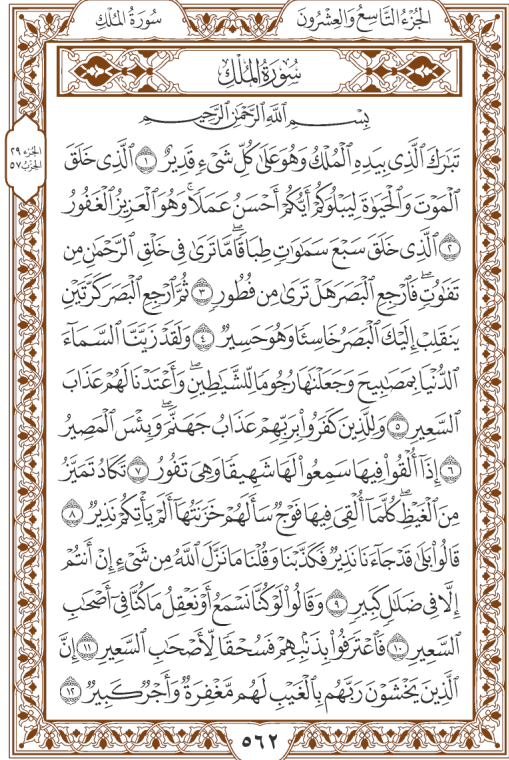 سُورَةُ المُلْكِ
الجُزْءُ التَّاسِعُ وَالعِشْرُونَ
سُورَةُ المُلْكِ
بِسْمِ ٱللَّهِ ٱلرَّحْمَٰنِ ٱلرَّحِيمِ
الجزء ٢٩
الحزب ٥٧
تَبَٰرَكَ ٱلَّذِى بِيَدِهِ ٱلْمُلْكُ وَهُوَ عَلَىٰ كُلِّ شَىْءٍ قَدِيرٌ ١ ٱلَّذِى خَلَقَ
ٱلْمَوْتَ وَٱلْحَيَوٰةَ لِيَبْلُوَكُمْ أَيُّكُمْ أَحْسَنُ عَمَلًا ۚ وَهُوَ ٱلْعَزِيزُ ٱلْغَفُورُ
٢ ٱلَّذِى خَلَقَ سَبْعَ سَمَٰوَٰتٍ طِبَاقًا ۖ مَّا تَرَىٰ فِى خَلْقِ ٱلرَّحْمَٰنِ مِن
تَفَٰوُتٍ ۖ فَٱرْجِعِ ٱلْبَصَرَ هَلْ تَرَىٰ مِن فُطُورٍ ٣ ثُمَّ ٱرْجِعِ ٱلْبَصَرَ كَرَّتَيْنِ
يَنقَلِبْ إِلَيْكَ ٱلْبَصَرُ خَاسِئًا وَهُوَ حَسِيرٌ ٤ وَلَقَدْ زَيَّنَّا ٱلسَّمَآءَ
ٱلدُّنْيَا بِمَصَٰبِيحَ وَجَعَلْنَٰهَا رُجُومًا لِّلشَّيَٰطِينِ ۖ وَأَعْتَدْنَا لَهُمْ عَذَابَ
ٱلسَّعِيرِ ٥ وَلِلَّذِينَ كَفَرُوا۟ بِرَبِّهِمْ عَذَابُ جَهَنَّمَ ۖ وَبِئْسَ ٱلْمَصِيرُ
٦ إِذَآ أُلْقُوا۟ فِيهَا سَمِعُوا۟ لَهَا شَهِيقًا وَهِىَ تَفُورُ ٧ تَكَادُ تَمَيَّزُ
مِنَ ٱلْغَيْظِ ۖ كُلَّمَآ أُلْقِىَ فِيهَا فَوْجٌ سَأَلَهُمْ خَزَنَتُهَآ أَلَمْ يَأْتِكُمْ نَذِيرٌ ٨
قَالُوا۟ بَلَىٰ قَدْ جَآءَنَا نَذِيرٌ فَكَذَّبْنَا وَقُلْنَا مَا نَزَّلَ ٱللَّهُ مِن شَىْءٍ إِنْ أَنتُمْ
إِلَّا فِى ضَلَٰلٍ كَبِيرٍ ٩ وَقَالُوا۟ لَوْ كُنَّا نَسْمَعُ أَوْ نَعْقِلُ مَا كُنَّا فِىٓ أَصْحَٰبِ
ٱلسَّعِيرِ ١٠ فَٱعْتَرَفُوا۟ بِذَنۢبِهِمْ فَسُحْقًا لِّأَصْحَٰبِ ٱلسَّعِيرِ ١١ إِنَّ
ٱلَّذِينَ يَخْشَوْنَ رَبَّهُم بِٱلْغَيْبِ لَهُم مَّغْفِرَةٌ وَأَجْرٌ كَبِيرٌ ١٢
٥٦٢